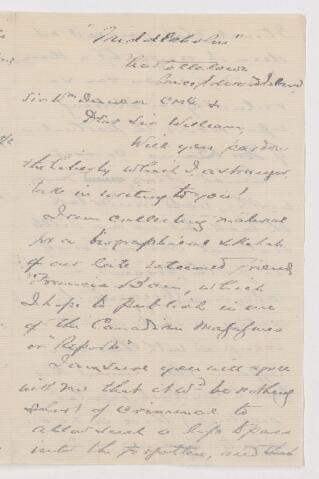 "Middleholm"
Charlottetown
Prince Edward Island
Sir Wm Dawson CMG &
Dear Sir William,
Will you pardon
the liberty which I, a stranger,
take in writing to you?
I am collecting material
for a biographical sketch
of our late esteemed friend
Francis Bain, which
I hope to publish in one
of the Canadian Magazines
or "Reports"
I am sure you will agree
with me that it wd be nothing
short of criminal to
allow such a life to pass
into the forgotten, and then